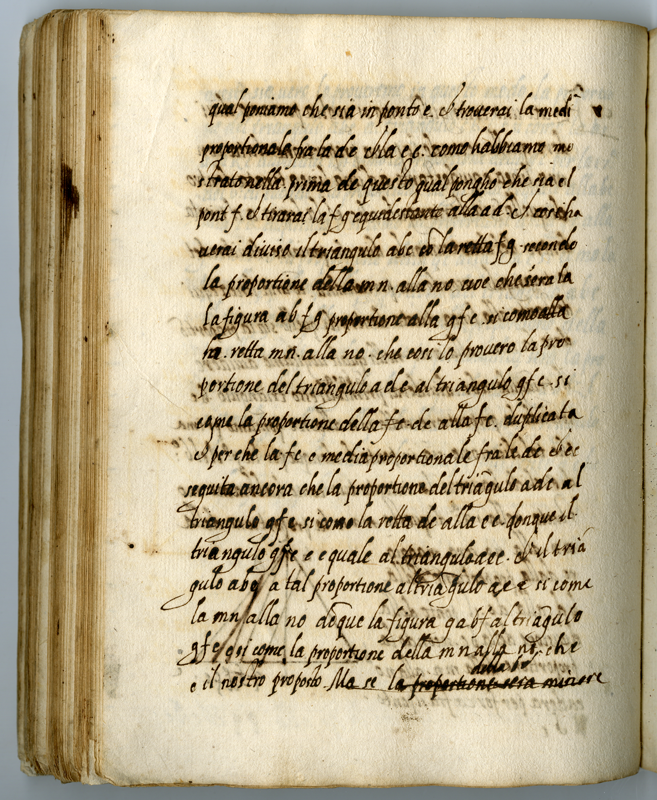 qual poniamo che sia in ponto e. et troverai la medi
proportionale fra la de et la e c. como habbiamo mo
strato nella prima de questo qual pongho che sia el
pont f. et tirarai la f g equidestante alla a d. et cosi ha
verai diviso il triangulo abc cō la retta f g secondo
la proportione della m n. alla no cioe che sera la
la figura a b f g proportione alla g f c. si como alla
retta m n. alla no. che cosi lo provero la pro
portione del triangulo a d e al triangulo g f c. si
come la proportione della f c. de alla f c. duplicata
et perche la f c e media proportionale fra le dc et ec
sequita ancora che la proportione del triāgulo a d c al
triangulo g f c si como la retta dc alla e c. donque il
triangulo g f c e equale al triangulo a e c. et il triā
gulo abe a tal proportione al triāgulo a e c si come
la m n alla no dōque la figura g a b f al triāgulo
g f c e si come la proportione della m n alla no, che
e il nostro proposto. Ma se la proportione sera minore